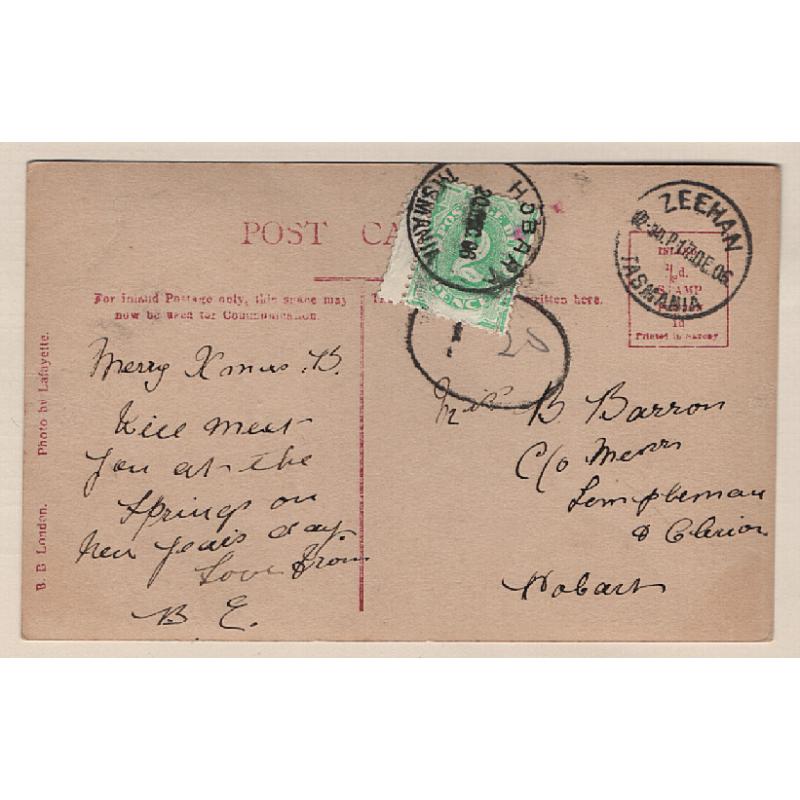 POST CA
For inland Postage only, this space may
now be used for Communication.
written here.
Merry Xmas. B.
Will meet
you at the
Springs on
New Years day.
Love from
B. E.
B. B. London. Photo by Lafayette.
HOBART
TASMANIA
20 06
POSTAGE
2
PENCE
20
ZEEHAN
17 DE. 06
TASMANIA
½d.
STAMP
1d
Printed in Saxony
Miss B Barron
C/o Messrs
& Clerion
Hobart